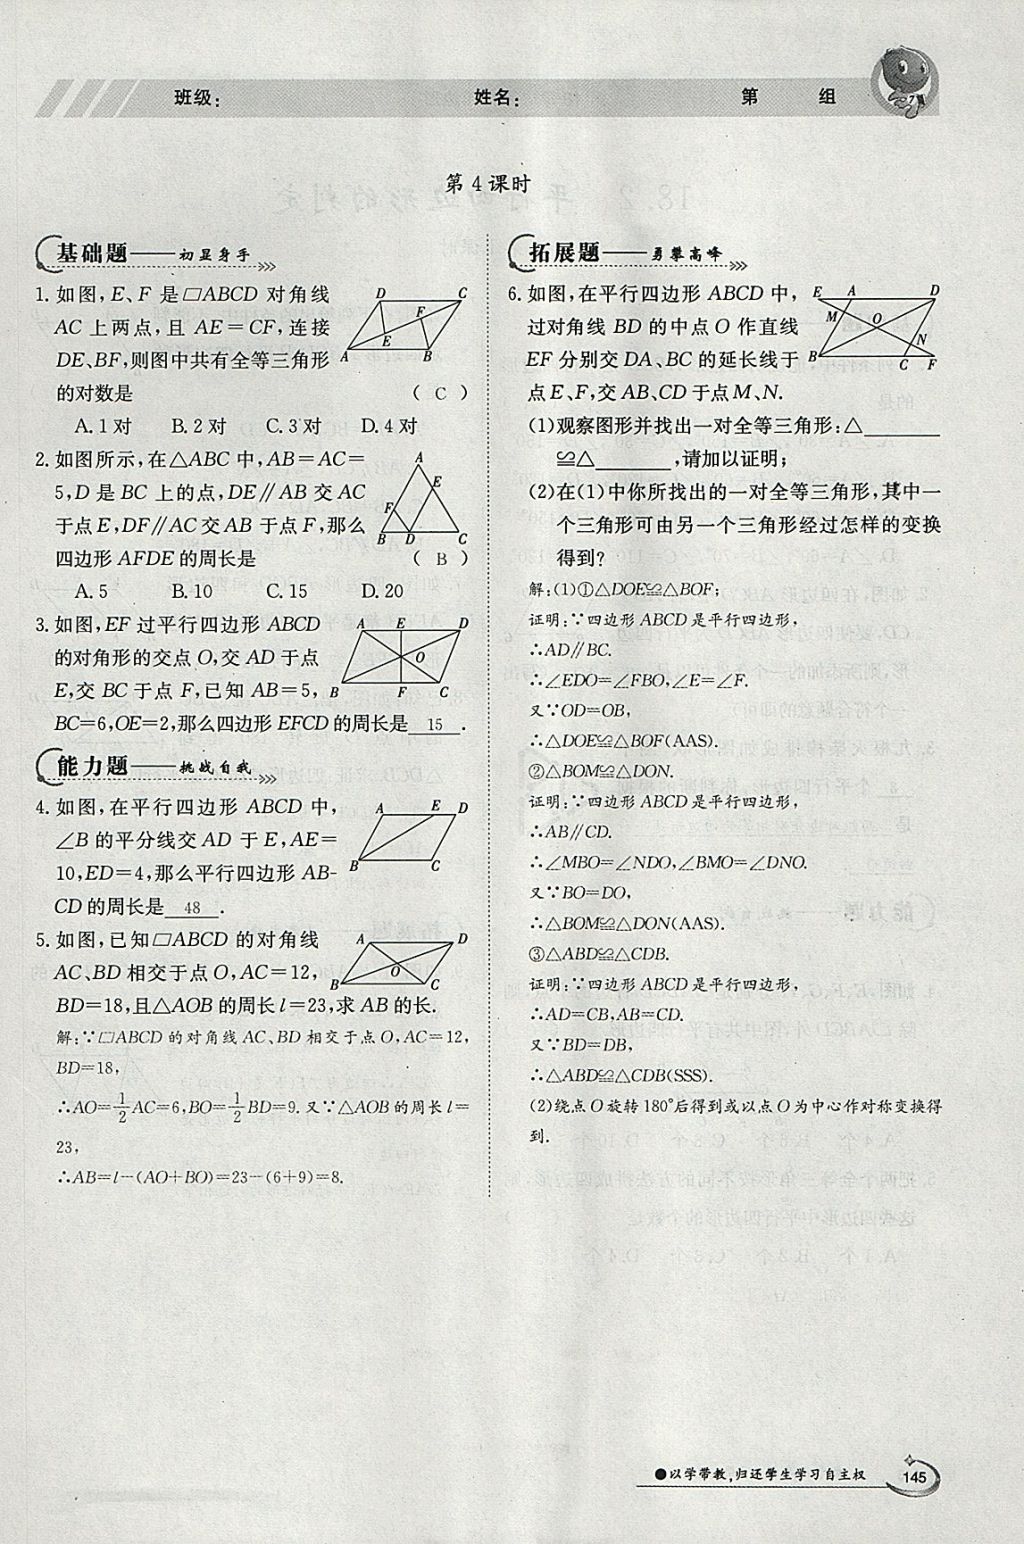 班级： 姓名： 第 组
第4课时
基础题——初显身手
1. 如图,E、F 是▱ABCD 对角线
AC 上两点,且 AE=CF,连接
DE、BF,则图中共有全等三角形
的对数是 ( C )
A. 1 对 B. 2 对 C. 3 对 D. 4 对
D C F E A B
2. 如图所示,在△ABC 中,AB=AC=
5,D 是 BC 上的点,DE∥AB 交 AC
于点 E,DF∥AC 交 AB 于点 F,那么
四边形 AFDE 的周长是 ( B )
A. 5 B. 10 C. 15 D. 20
A E F B D C
3. 如图,EF 过平行四边形 ABCD
的对角形的交点 O,交 AD 于点
E,交 BC 于点 F,已知 AB=5,
BC=6,OE=2,那么四边形 EFCD 的周长是 15 .
A E D O B F C
能力题——挑战自我
4. 如图,在平行四边形 ABCD 中,
∠B 的平分线交 AD 于 E,AE=
10,ED=4,那么平行四边形 AB-
CD 的周长是 48 .
A E D B C
5. 如图,已知▱ABCD 的对角线
AC、BD 相交于点 O,AC=12,
BD=18,且△AOB 的周长 l=23,求 AB 的长.
A D O B C
解:∵▱ABCD 的对角线 AC、BD 相交于点 O,AC=12,
BD=18,
∴AO=1/2AC=6,BO=1/2BD=9. 又∵△AOB 的周长 l=
23,
∴AB=l-(AO+BO)=23-(6+9)=8.
拓展题——勇攀高峰
6. 如图,在平行四边形 ABCD 中,
过对角线 BD 的中点 O 作直线
EF 分别交 DA、BC 的延长线于
点 E、F,交 AB、CD 于点 M、N.
E A D M O N B C F
(1)观察图形并找出一对全等三角形:△______
≌△______,请加以证明;
(2)在(1)中你所找出的一对全等三角形,其中一
个三角形可由另一个三角形经过怎样的变换
得到?
解:(1)①△DOE≌△BOF;
证明:∵四边形 ABCD 是平行四边形,
∴AD∥BC.
∴∠EDO=∠FBO,∠E=∠F.
又∵OD=OB,
∴△DOE≌△BOF(AAS).
②△BOM≌△DON.
证明:∵四边形 ABCD 是平行四边形,
∴AB∥CD.
∴∠MBO=∠NDO,∠BMO=∠DNO.
又∵BO=DO,
∴△BOM≌△DON(AAS).
③△ABD≌△CDB.
证明:∵四边形 ABCD 是平行四边形,
∴AD=CB,AB=CD.
又∵BD=DB,
∴△ABD≌△CDB(SSS).
(2)绕点 O 旋转 180°后得到或以点 O 为中心作对称变换得
到.
●以学带教,归还学生学习自主权 145